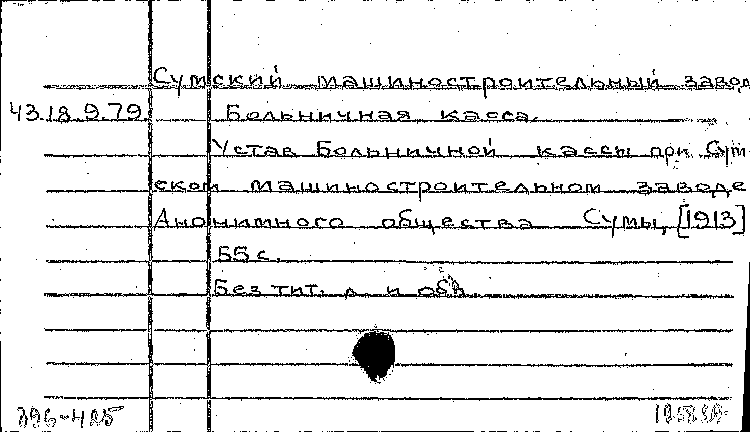 Сумский машиностроительный завод
43.18.9.79. Больничная касса.
Устав Больничной кассы при Сум-
ском машиностроительном заводе
Анонимного общества Сумы, [1913]
55 с.
Без тит. л и обл.
396-425